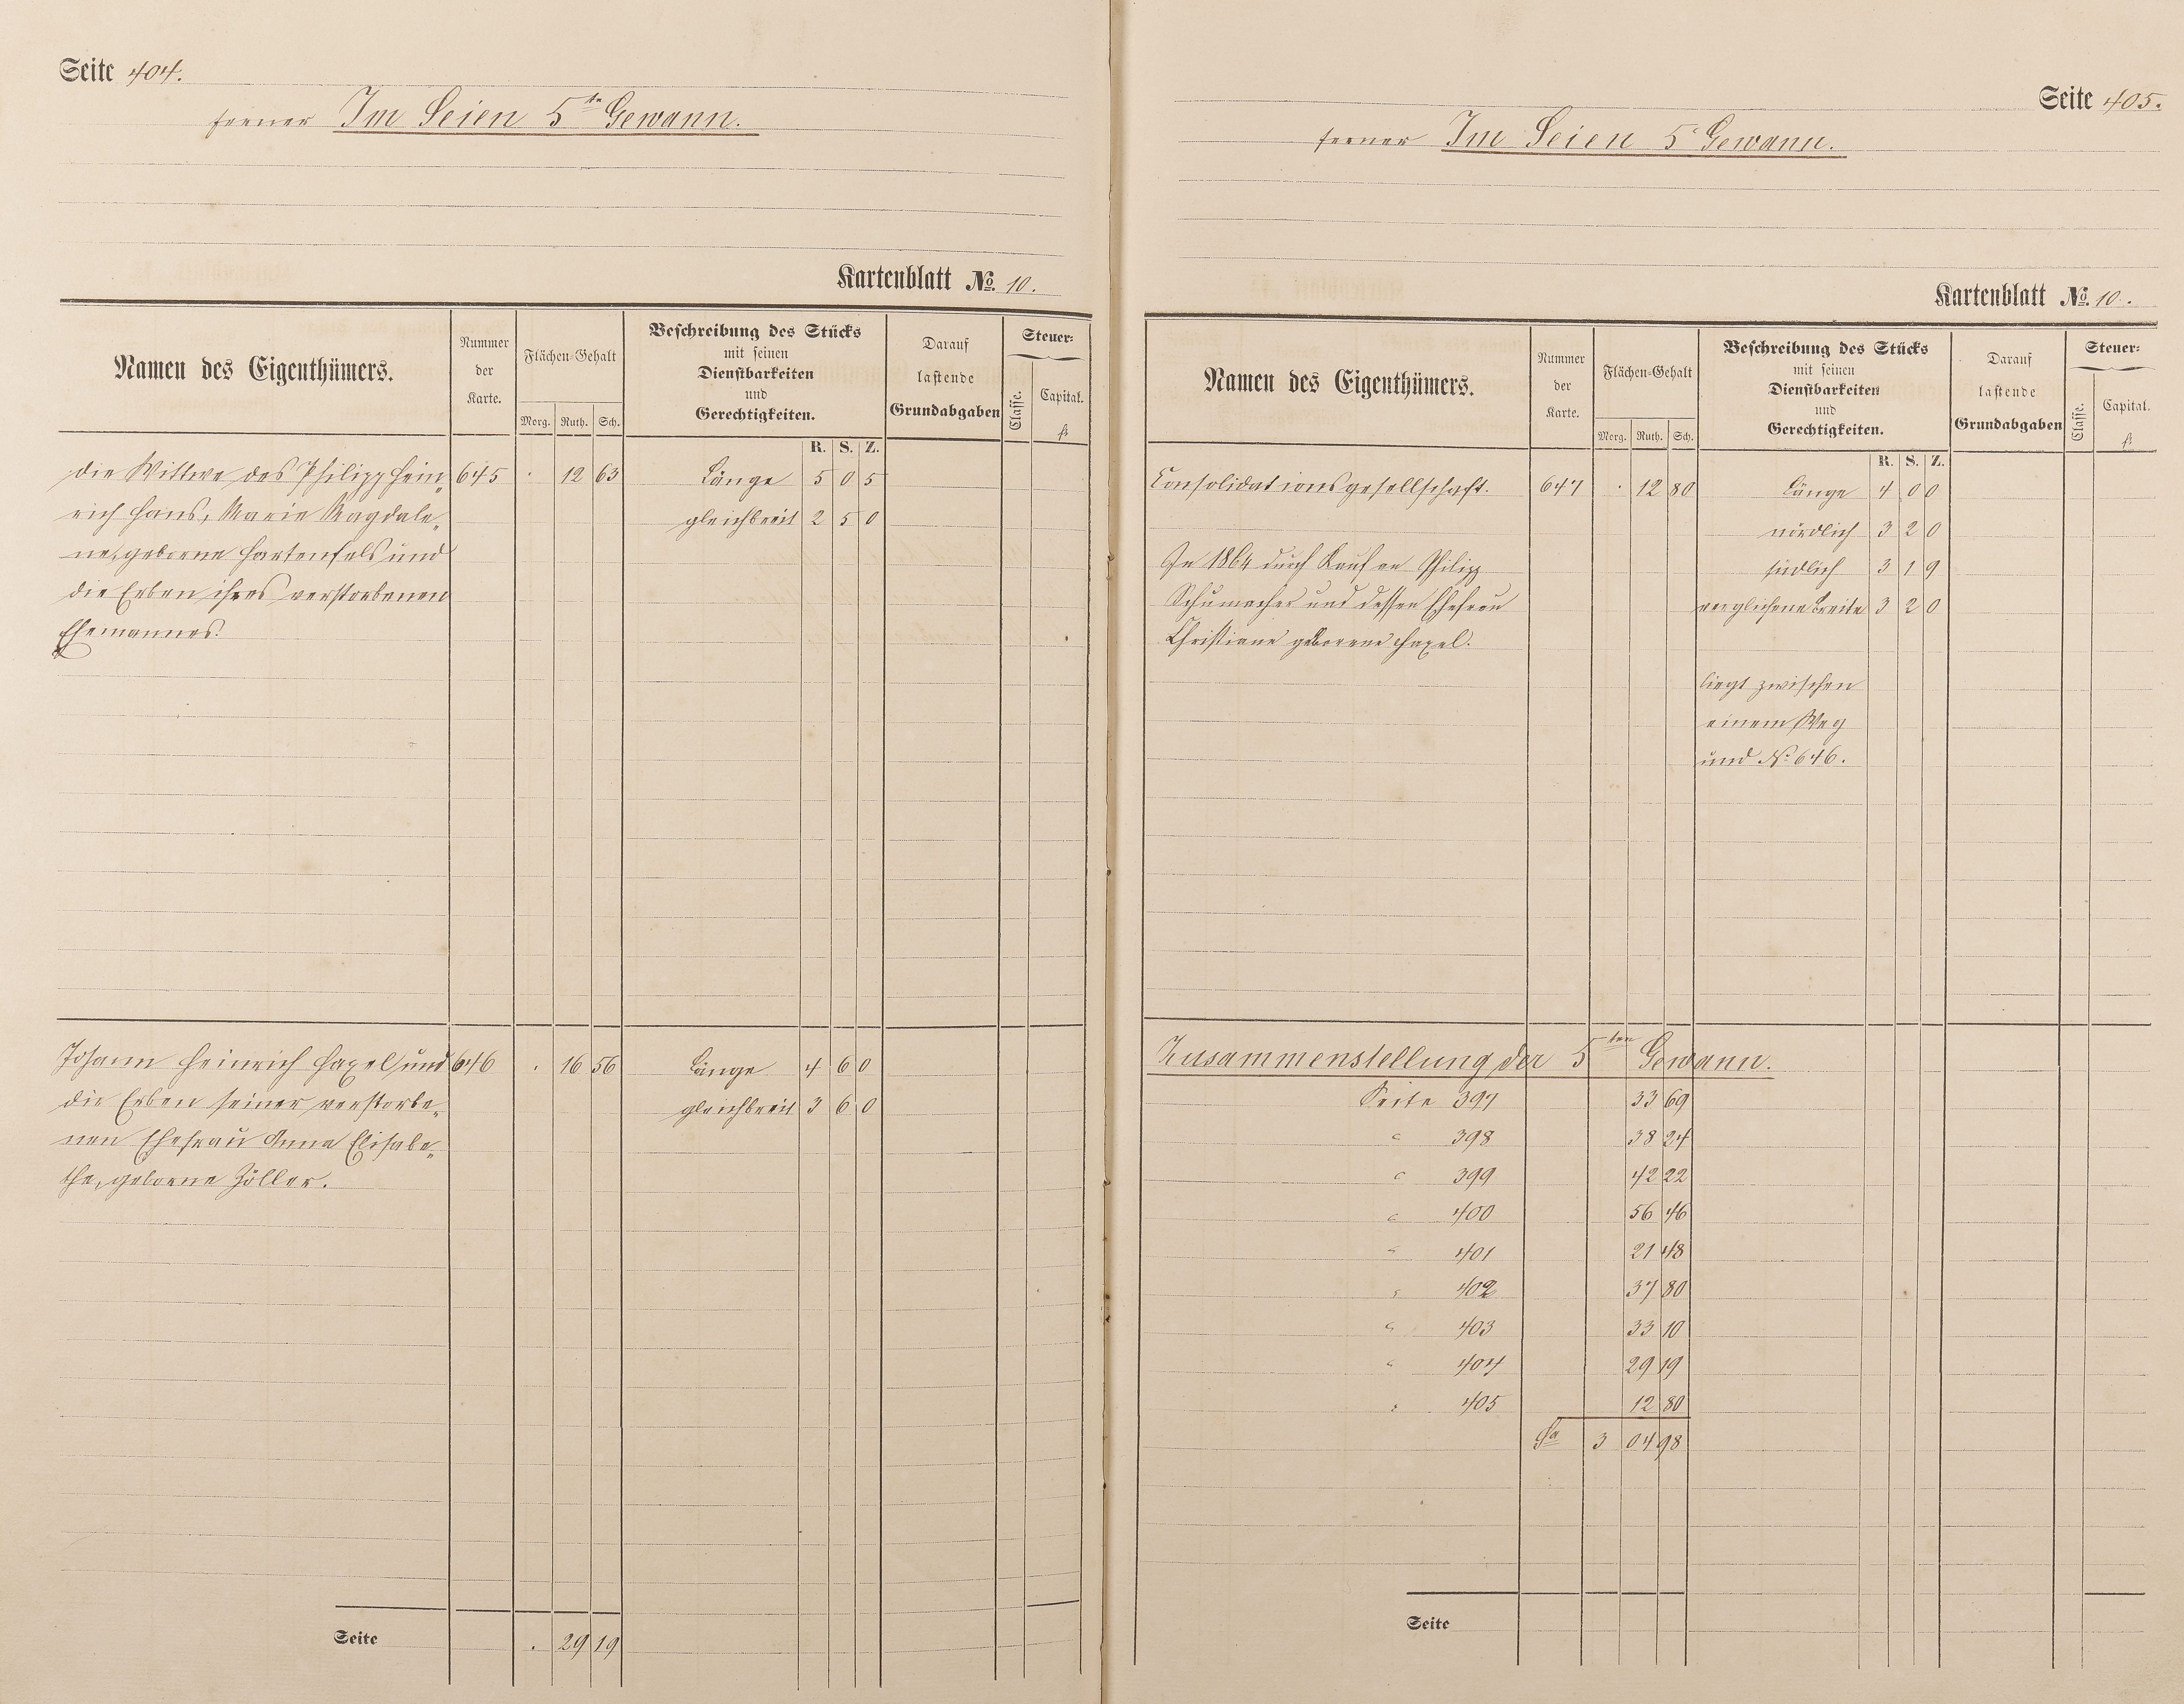 Seite 404.
ferner Im Seien 5te Gewann.
Kartenblatt No. 10.
Namen des Eigenthümers.
Nummer
der
Karte.
Flächen-Gehalt
Morg. Ruth. Sch.
Beschreibung des Stücks
mit seinen
Dienstbarkeiten
und
Gerechtigkeiten.
R. S. Z.
Darauf
lastende
Grundabgaben
Steuer-
Classe.
Capital.
fl.
die Wittwe des Philipp Hein„ 645 . 12 63 Länge 5 0 5
rich Hans, Marie Magdale„ gleichbreit 2 5 0
ne, geborne Hartenfels und
die Erben ihres verstorbenen
Ehemannes.
Johann Heinrich Haxel und 646 . 16 56 Länge 4 6 0
die Erben seiner verstorbe„ gleichbreit 3 6 0
nen Ehefrau Anna Elisabe„
the, geborne Zöller.
Seite . 29 19
Seite 405.
ferner Im Seien 5 Gewann.
Kartenblatt No. 10.
Namen des Eigenthümers.
Nummer
der
Karte.
Flächen-Gehalt
Morg. Ruth. Sch.
Beschreibung des Stücks
mit seinen
Dienstbarkeiten
und
Gerechtigkeiten.
R. S. Z.
Darauf
lastende
Grundabgaben
Steuer-
Classe.
Capital.
fl.
Consolidationsgesellschaft. 647 . 12 80 Länge 4 0 0
nördlich 3 2 0
In 1864 durch Kauf an Philipp südlich 3 1 9
Schumacher und dessen Ehefrau verglichene Breite 3 2 0
Christiane geborene Haxel.
liegt zwischen
einem Weg
und No. 646.
Zusammenstellung der 5ten Gewann.
Seite 397 33 69
" 398 38 24
" 399 42 22
" 400 56 46
" 401 21 48
" 402 37 80
" 403 33 10
" 404 29 19
" 405 12 80
Sa 3 04 98
Seite